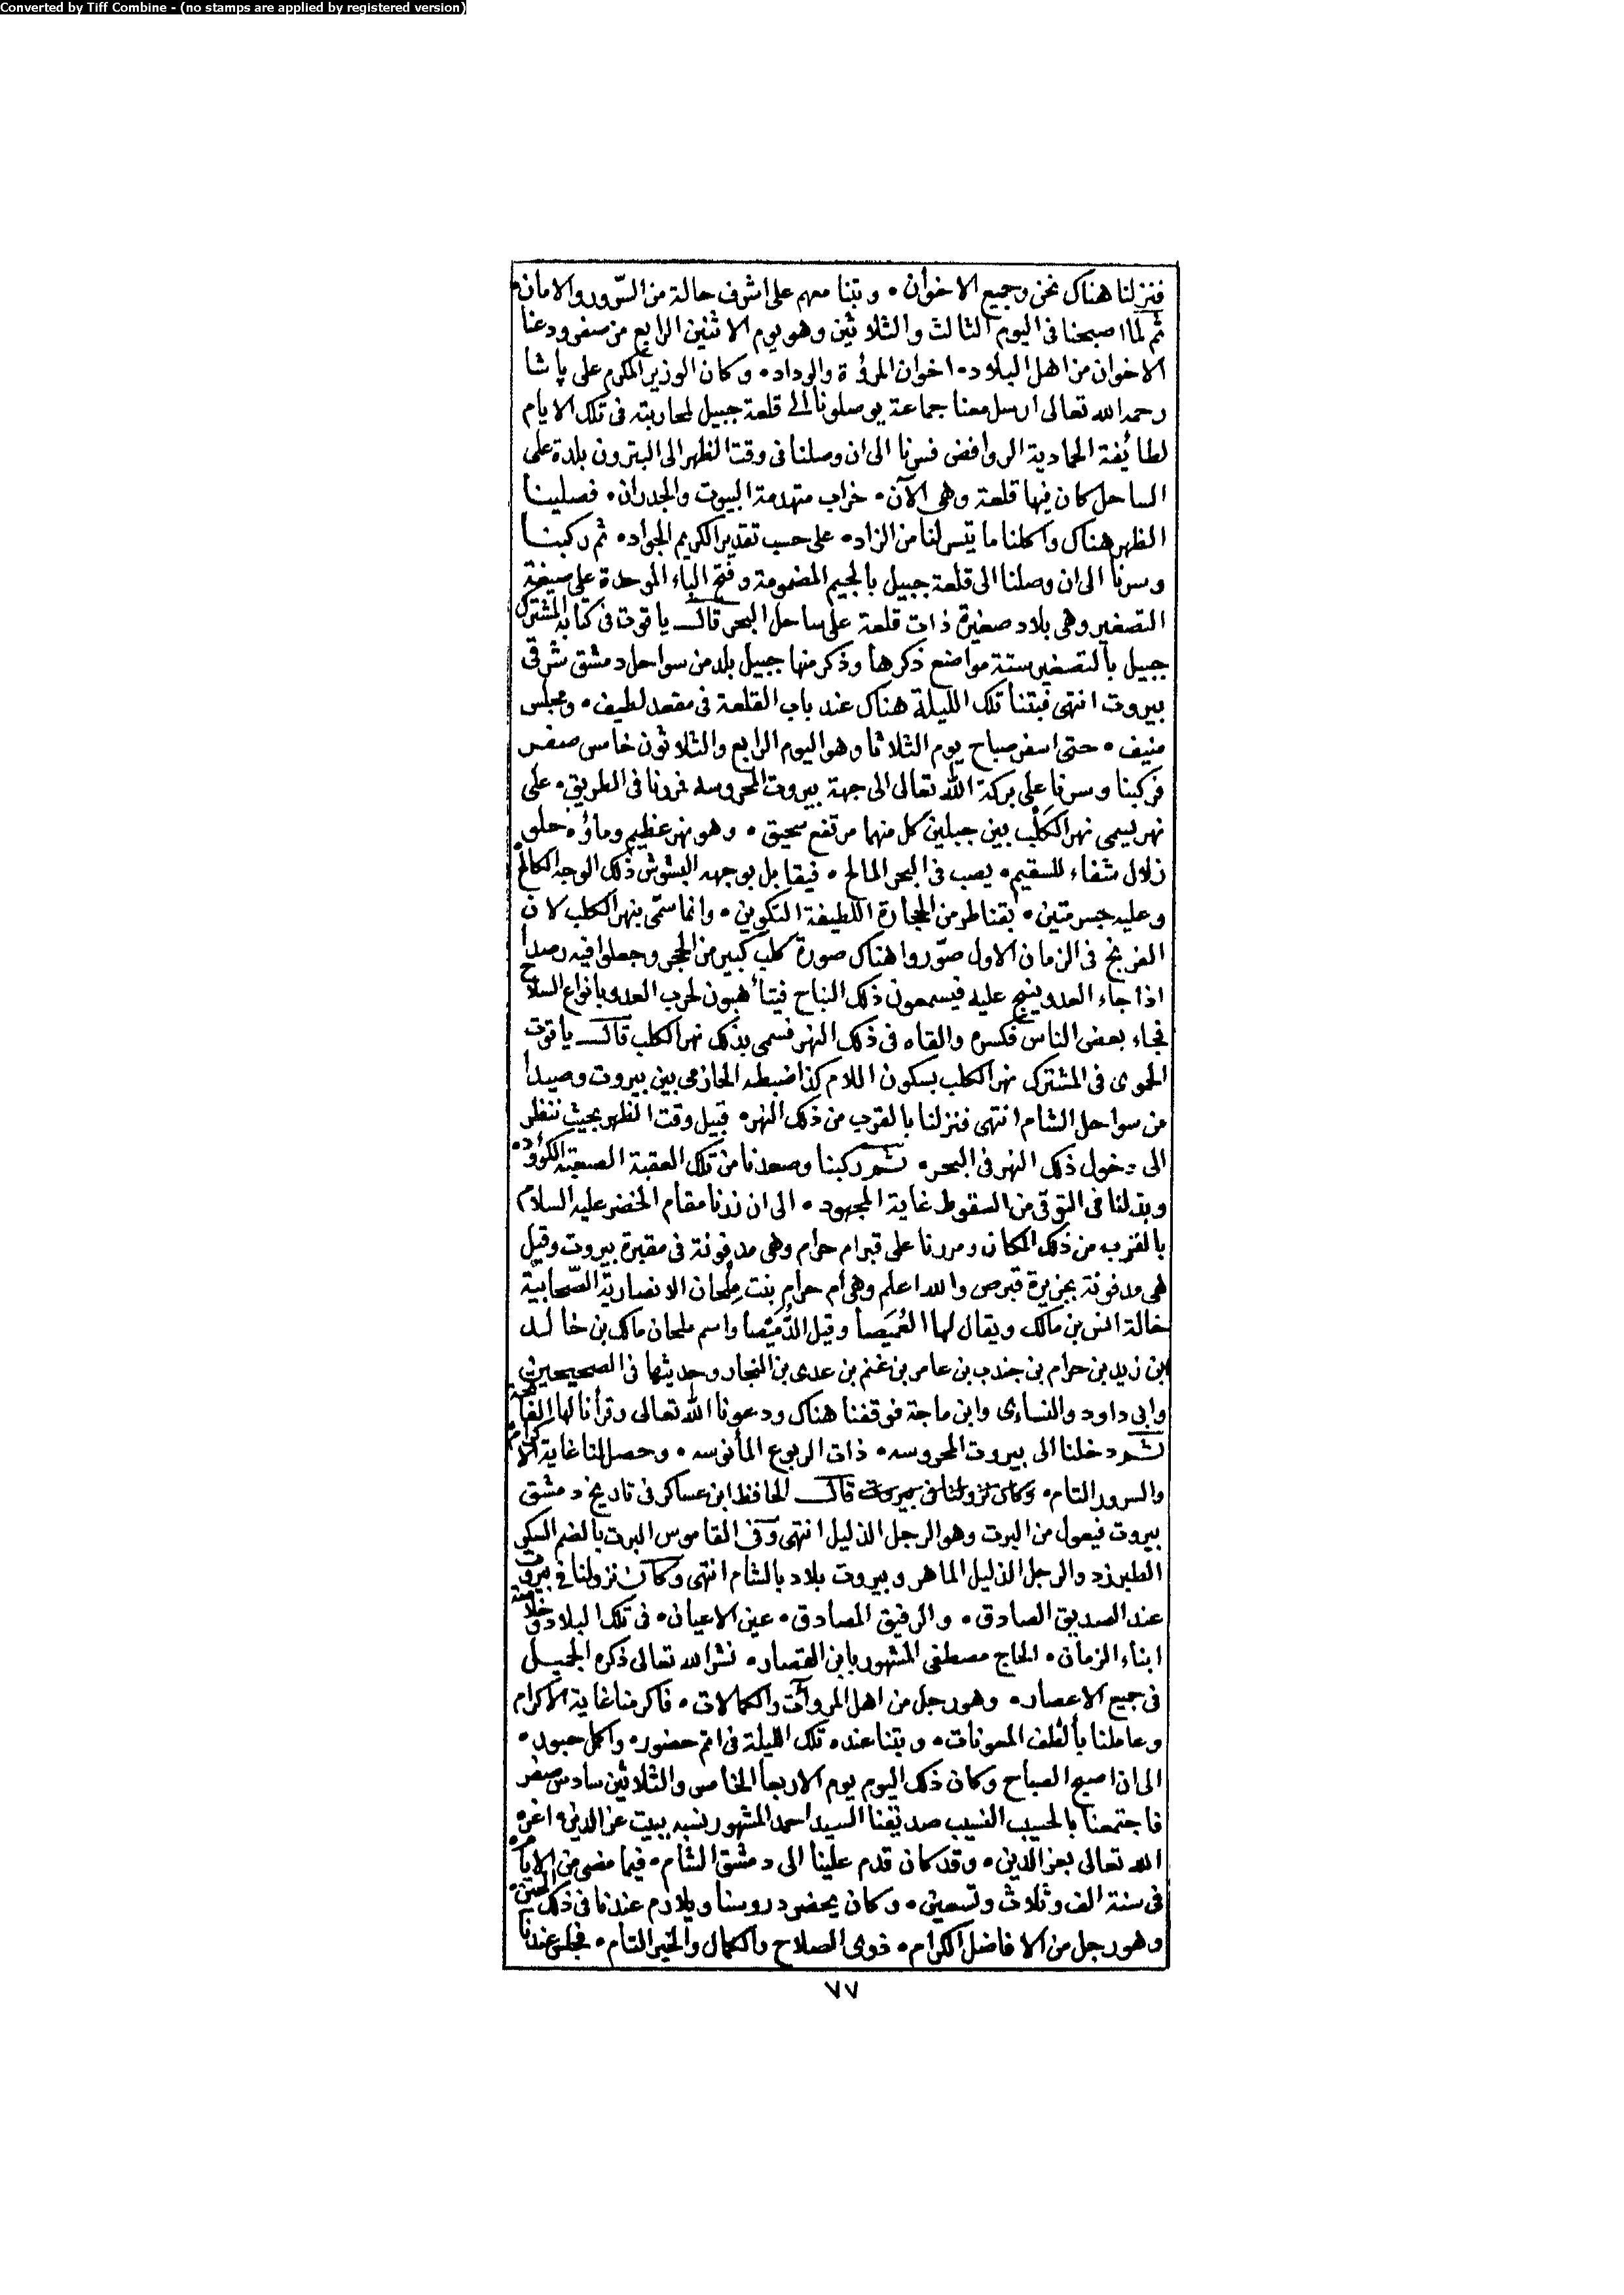 Converted by Tiff Combine - (no stamps are applied by registered version)
فنزلنا هناك نحن وجميع الاخوان • وبتنا معهم على اشرف حالة من السّرور والامان •
ثم لما اصبحنا فى اليوم الثالث والثلاثين وهو يوم الاثنين الرابع من صفر ودعنا
الاخوان من اهل البلاد • اخوان المرؤة والوداد • وكان الوزير المكرم على پاشا
رحمه الله تعالى ارسل معنا جماعة يوصلونا الى قلعة جبيل لمحاربته فى تلك الايام
لطائفة الحمادية الروافض فسرنا الى ان وصلنا فى وقت الظهر الى البترون بلدة على
الساحل كان فيها قلعة وهى الآن • خراب متهدمة البيوت والجدران • فصلينا
الظهر هناك واكلنا ما يتسر لنا من الزاد • على حسب تقدير الكريم الجواد • ثم ركبنا
وسرنا الى ان وصلنا الى قلعة جبيل بالجيم المضمومة وفتح الباء الموحدة على صيغة
التصغير وهى بلاد صغيرة ذات قلعة على ساحل البحر قال ياقوت فى كتابه المشترك
جبيل بالتصغير ستة مواضع ذكرها وذكر منها جبيل بلد من سواحل دمشق شرقى
بيروت انتهى فبتنا تلك الليلة هناك عند باب القلعة فى مقعد لطيف • ومجلس
منيف • حتى اسفر صباح يوم الثلاثا وهو اليوم الرابع والثلاثون خامس صفر
فركبنا وسرنا على بركة الله تعالى الى جهة بيروت المحروسه فمررنا فى الطريق • على
نهر يسمى نهر الكَلْب بين جبلين كل منهما مرتفع سحيق • وهو نهر عظيم وماؤه حلو
زلال شفاء للسقيم • يصب فى البحر المالح • فيقابل بوجهه البشوش ذلك الوجه الكالح
وعليه جسر متين • بقناطر من الحجارة اللطيفة التكوين • وانما سمّى بنهر الكلب لان
الفرنج فى الزمان الاول صوّروا هناك صورة كلب كبير من الحجر وجعلوا فيه رصدا
اذا جاء العدو ينبح عليه فيسمعون ذلك النباح فيتأهبون لحرب العدو بانواع السلاح
فجاء بعض الناس فكسره والقاه فى ذلك النهر فسمى بذلك نهر الكلب قال ياقوت
الحموى فى المشترك نهر الكلب بسكون اللام كذا ضبطه الحازمى بين بيروت وصيدا
من سواحل الشام انتهى فنزلنا بالقرب من ذلك النهر • قبيل وقت الظهر بحيث ننظر
الى دخول ذلك النهر فى البحر • ثم ركبنا وصعدنا من تلك العقبة الصعبة الكؤود •
وبذلنا فى التوقى من السقوط غاية المجهود • الى ان زرنا مقام الخضر عليه السلام
بالقرب من ذلك المكان ومررنا على قبر ام حرام وهى مدفونة فى مقبرة بيروت وقيل
هى مدفونة بجزيرة قبرص والله اعلم وهى ام حرام بنت مِلحان الانصارية الصّحابيّة
خالة انس بن مالك ويقال لها الغُمَيصا وقيل الرُّمَيْصا واسم ملحان مالك بن خالد
ابن زيد بن حرام بن جندب بن عامر بن غنم بن عدى بن النجار وحديثها فى الصحيحين
وابى داود والنساءى وابن ماجة فوقفنا هناك ودعونا الله تعالى وقرأنا لها الفاتحة
ثم دخلنا الى بيروت المحروسه • ذات الربوع المأنوسه • وحصل لنا غاية الاكرام
والسرور التام • وكان نزولنا فى بيروت قال الحافظ ابن عساكر فى تاريخ دمشق
بيروت فيعول من البرت وهو الرجل الذليل انتهى وفى القاموس البرت بالضم السكر
الطبرزد والرجل الذليل الماهر وبيروت بلاد بالشام انتهى وكان نزولنا فى بيروت
عند الصديق الصادق • والرفيق المصادق • عين الاعيان • فى تلك البلاد وخلاصة
ابناء الزمان • الحاج مصطفى المشهور بابن القصار • نشر الله تعالى ذكره الجميل
فى جميع الاعصار • وهو رجل من اهل المروآت والكمالات • فاكرمنا غاية الاكرام
وعاملنا بألطف المعونات • وبتنا عنده تلك الليلة فى اتم حضور • واكمل حبور •
الى ان اصبح الصباح وكان ذلك اليوم يوم الاربعا الخامس والثلاثين سادس صفر
فاجتمعنا بالحسيب النسيب صديقنا السيد احمد المشهور نسبه ببيت عز الدين • اعزه
الله تعالى بعز الدين • وقد كان قدم علينا الى دمشق الشام • فيما مضى من الايام •
فى سنة الف وثلاث وتسعين • وكان يحضر دروسنا ويلازم عندنا فى ذلك الحين •
وهو رجل من الافاضل الكرام • ذوى الصلاح والكمال والخير التام • فجلس عندنا
٧٧